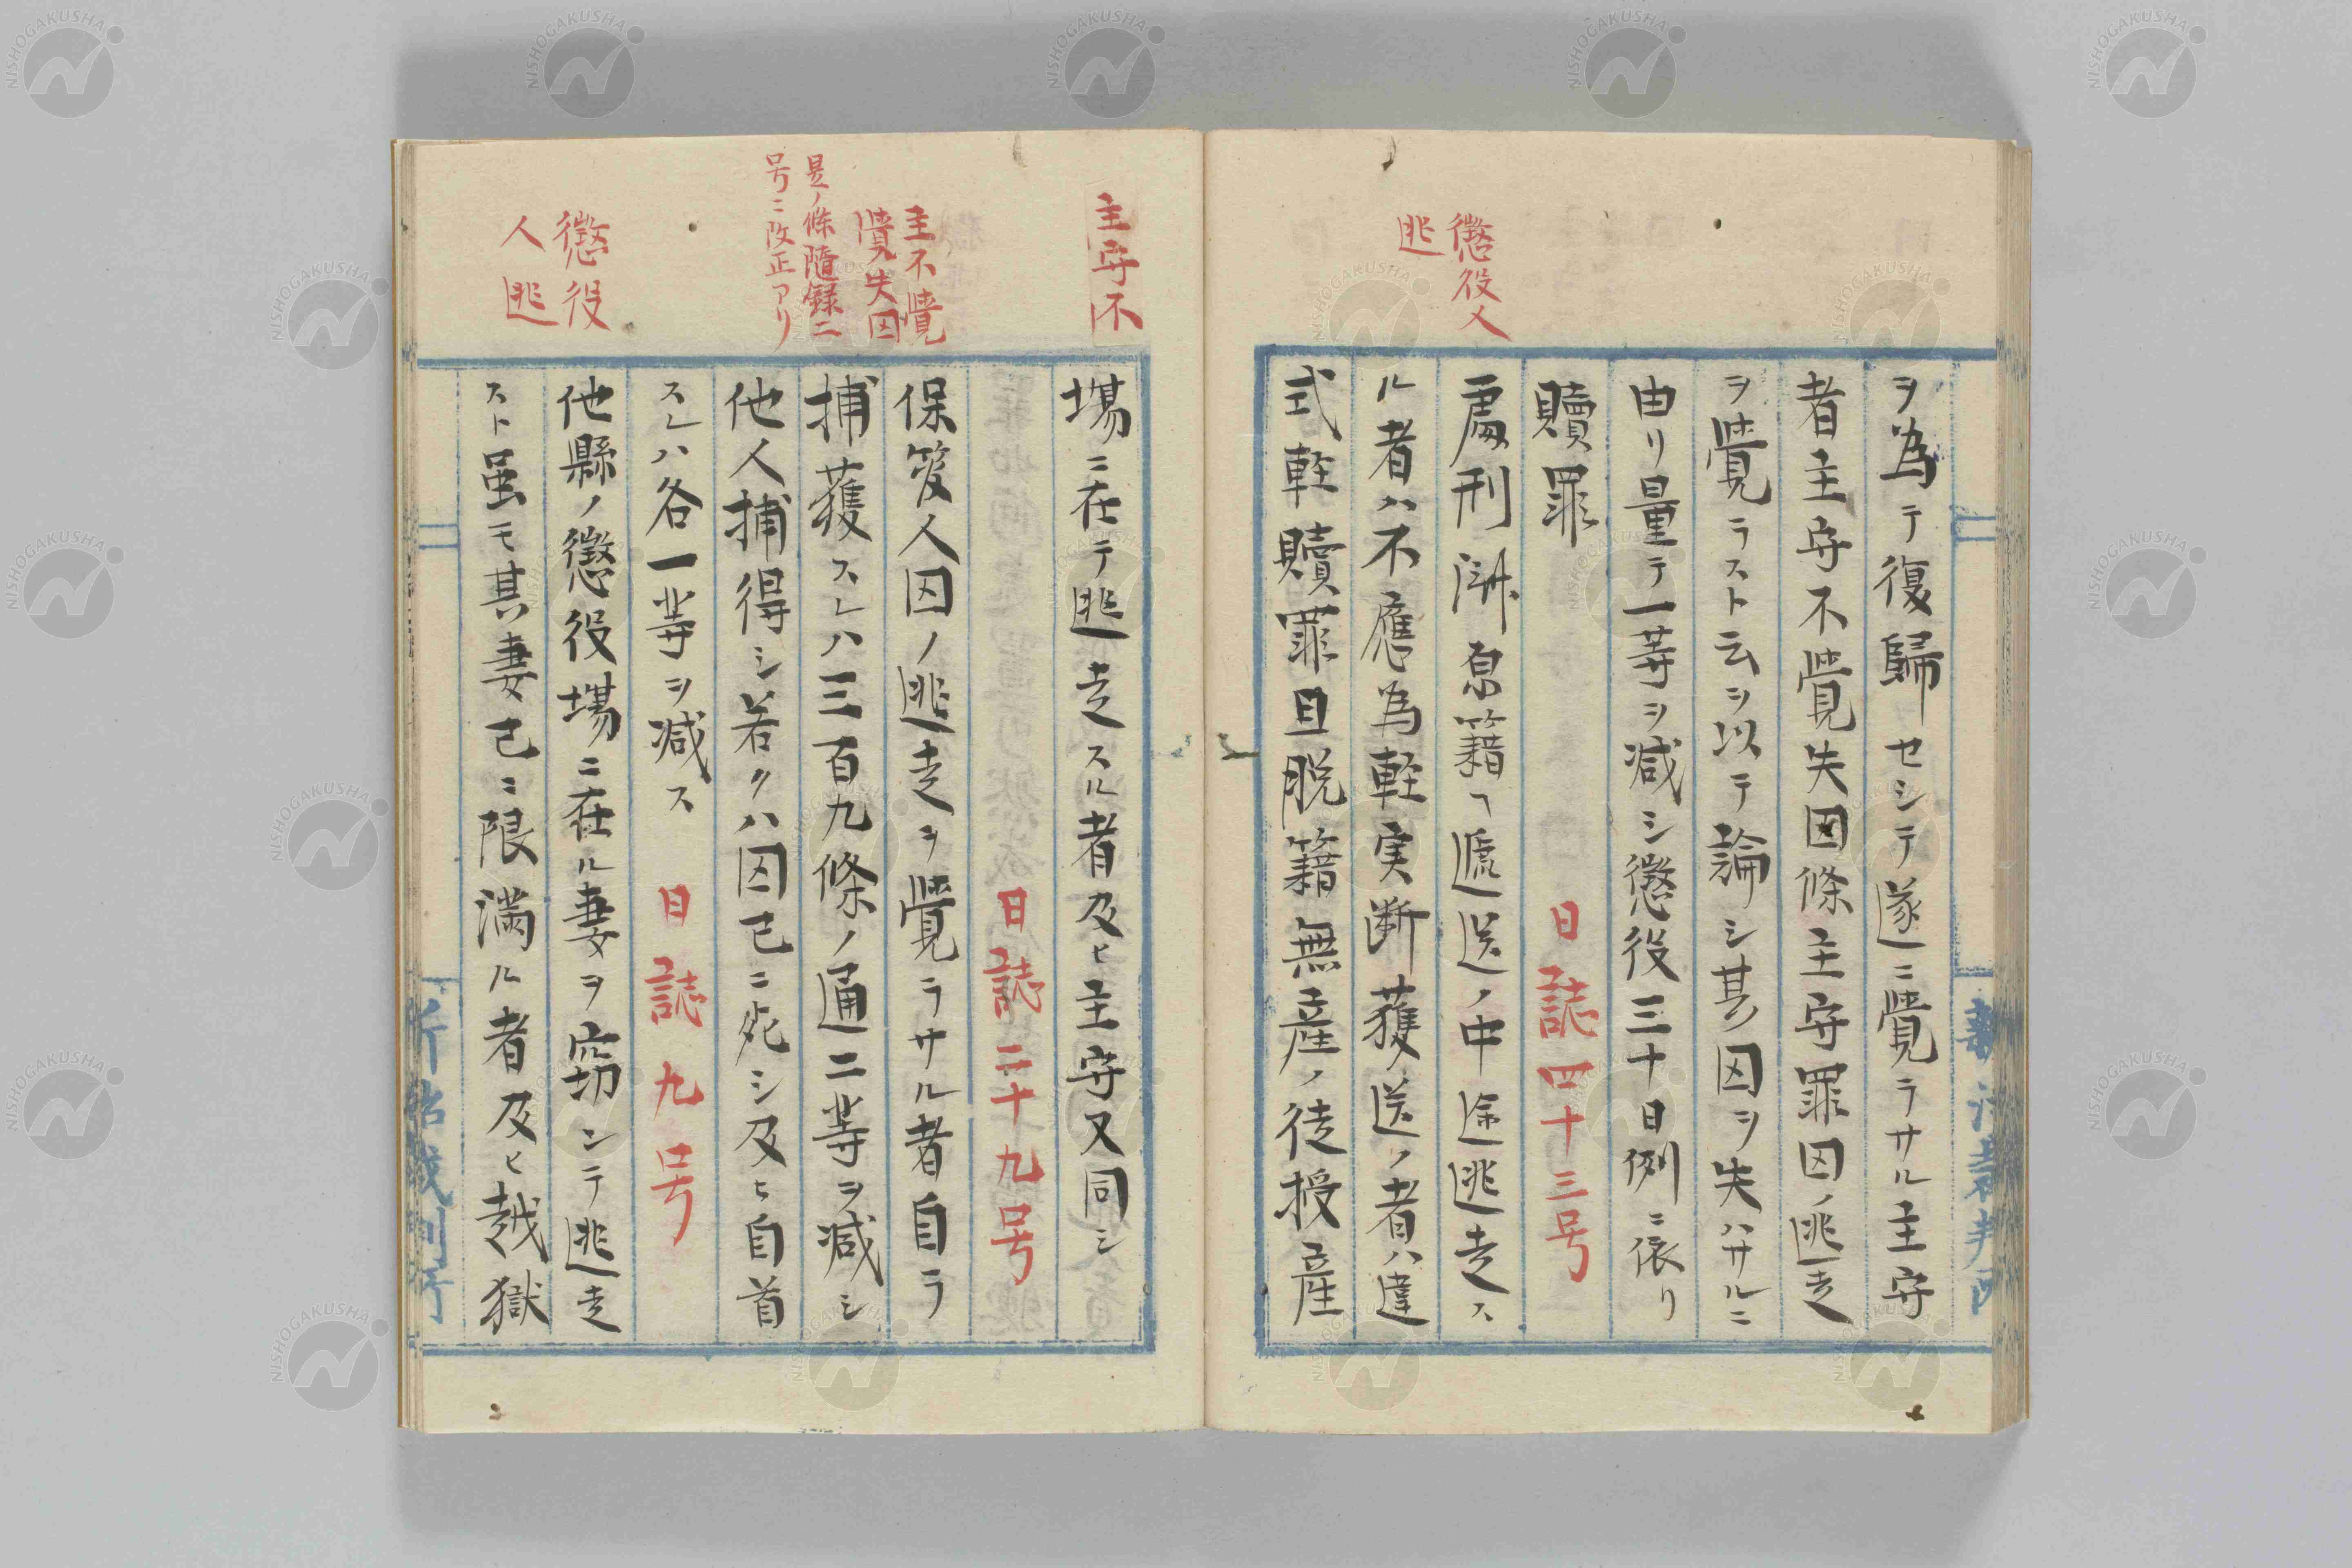 ヲ為テ復歸セシテ遂ニ覺ラサル主守
者主守不覺失囚條主守罪囚ノ逃走
ヲ覺ラスト云ヲ以テ論シ其囚ヲ失ハサルニ
由リ量テ一等ヲ減シ懲役三十日例ニ依リ
贖罪
日誌四十三号
懲役人
逃
處刑済原籍ヘ遞送ノ中途逃走ス
ル者ハ不應為軽実断獲送ノ者ハ違
式軽贖罪且脱籍無産ノ徒授産
主守不
場ニ在テ逃走スル者及ヒ主守又同シ
日誌二十九号
主不覺
覺失囚
保管人囚ノ逃走ヲ覺ラサル者自ラ
是ノ條隨録二
号ニ改正アリ
捕獲スレハ三百九條ノ通二等ヲ減シ
他人捕得シ若クハ囚已ニ死シ及ヒ自首
スレハ各一等ヲ減ス
日誌九号
懲役
人逃
他縣ノ懲役場ニ在ル妻ヲ窃ンテ逃走
スト虽モ其妻已ニ限滿ル者及ヒ越獄
NISHOGAKUSHA